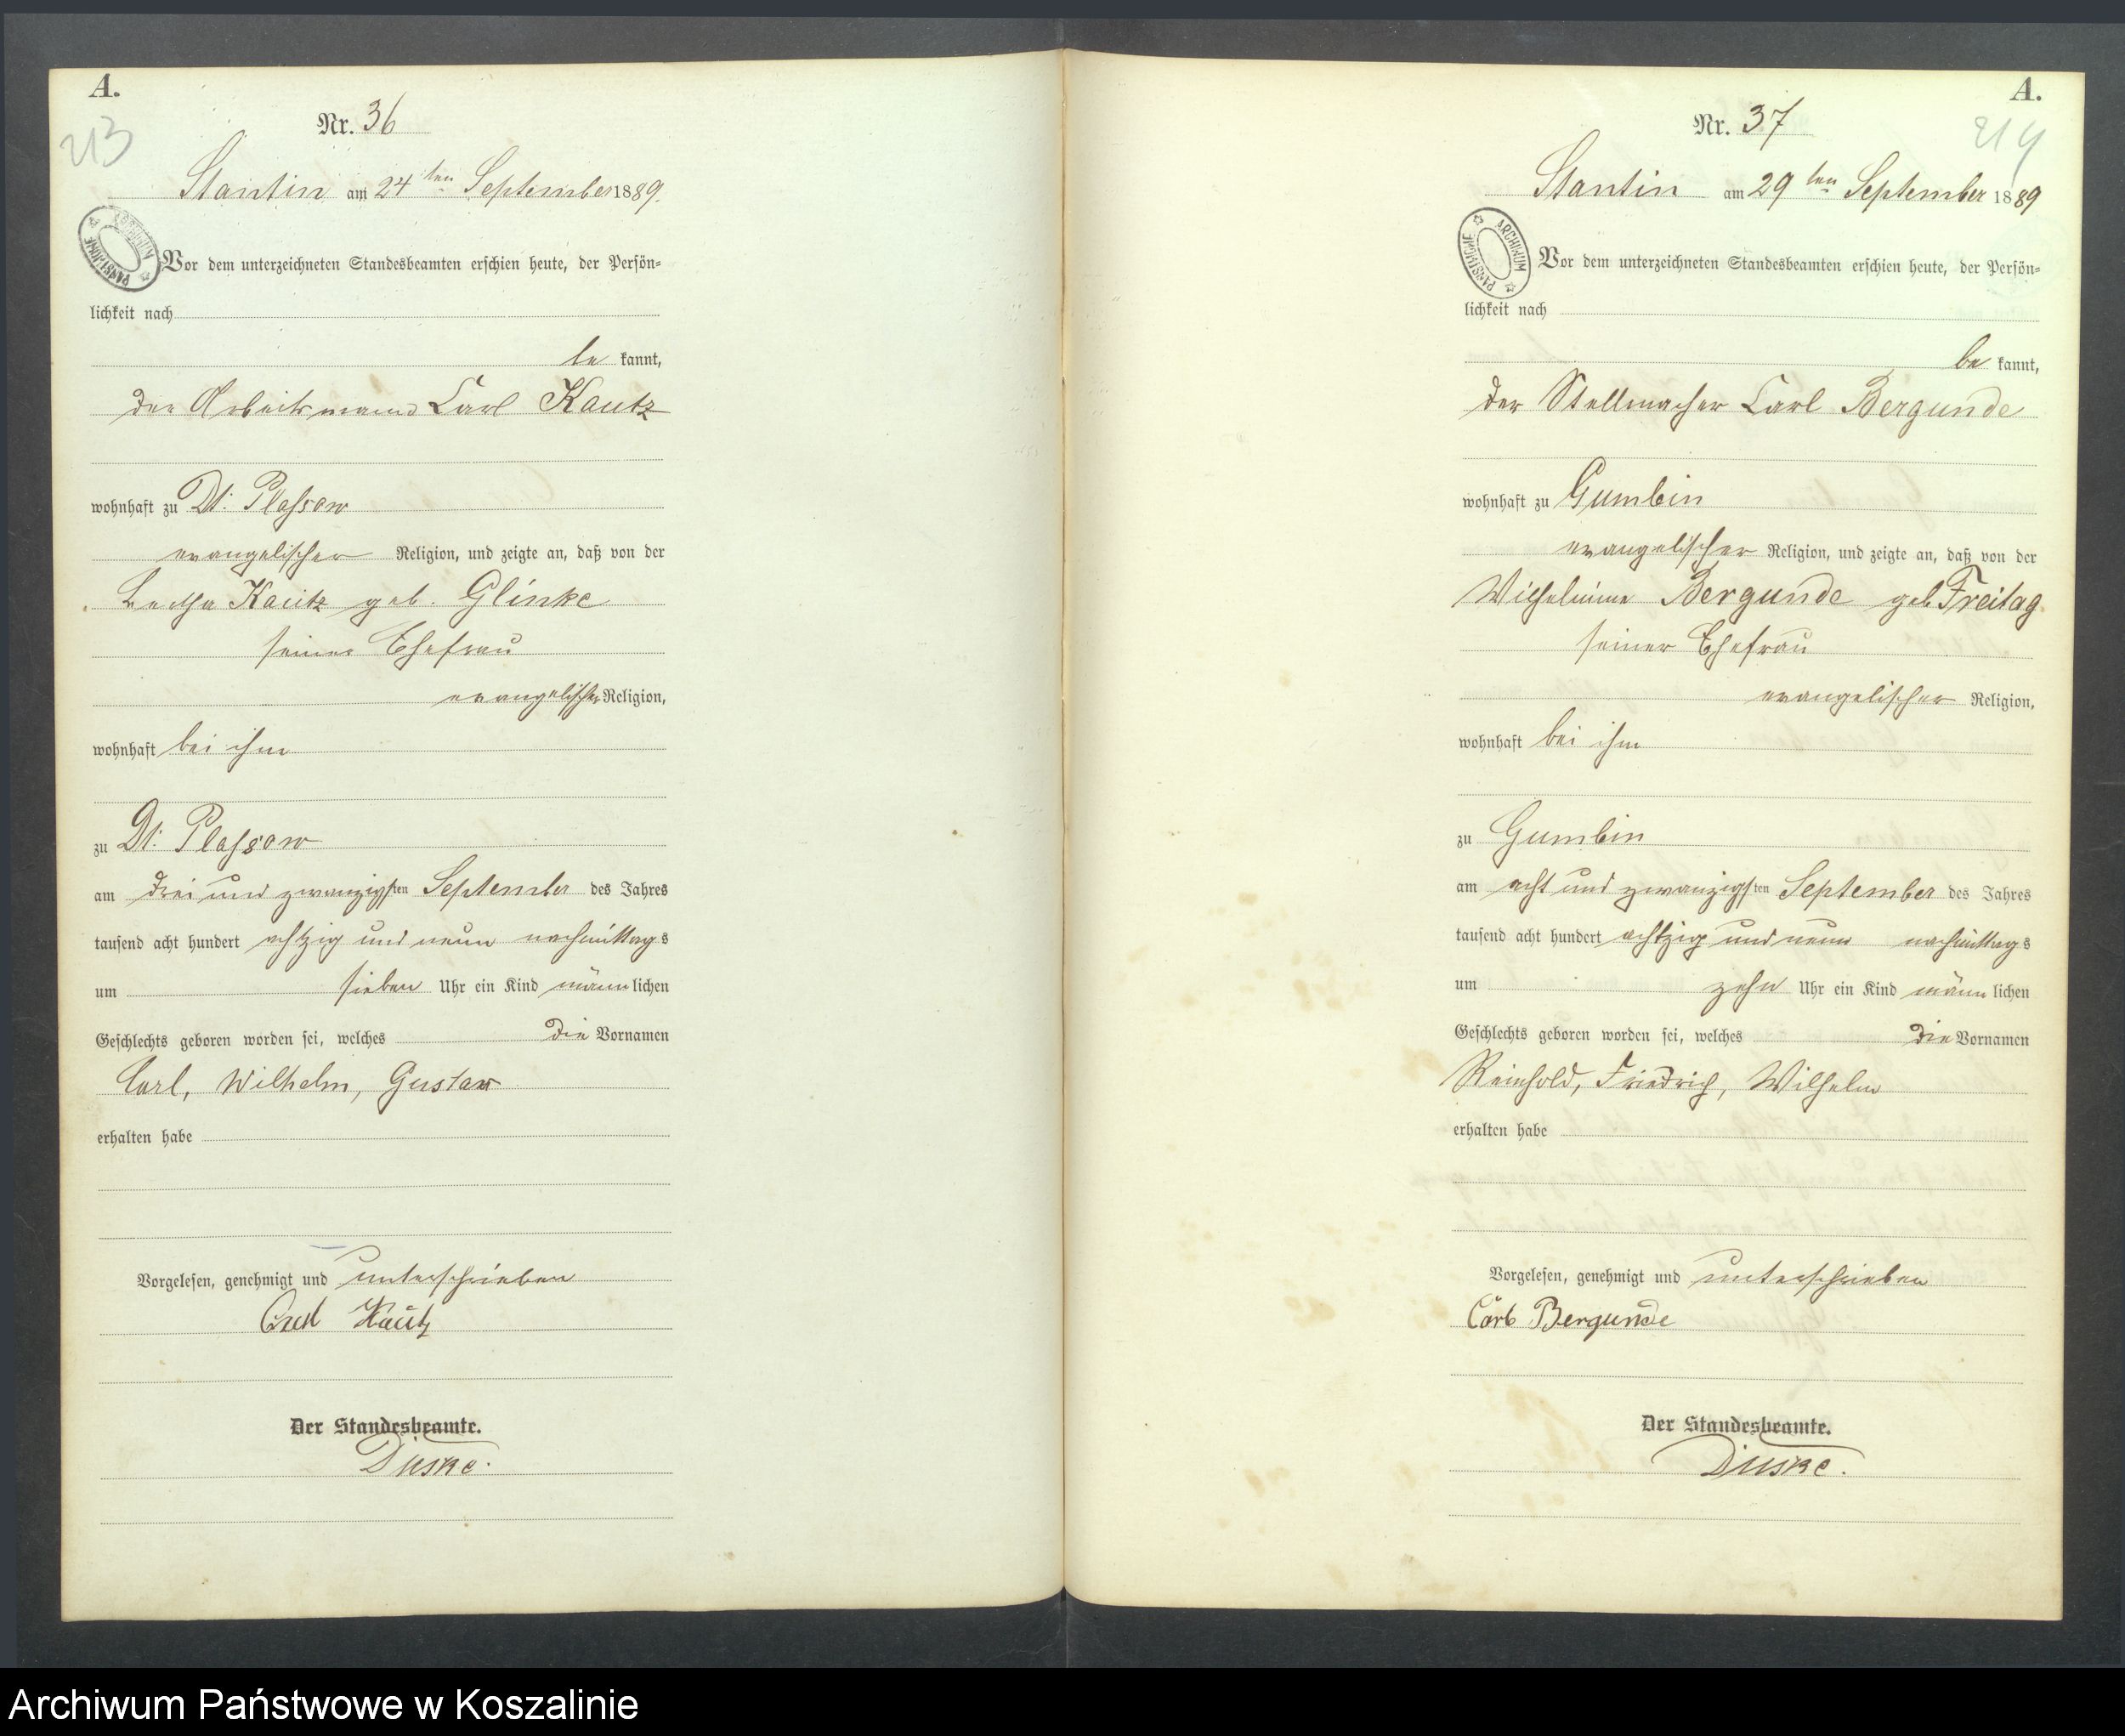 A.
213
Nr. 36
Stantin am 24ten September 1889.
ARCHIWUM PAŃSTWOWE
Vor dem unterzeichneten Standesbeamten erschien heute, der Persön=
lichkeit nach
be kannt,
der Arbeitsmann Carl Kautz
wohnhaft zu Dt: Plassow
evangelischer Religion, und zeigte an, daß von der
Kautz geb. Glinke
seiner Ehefrau
evangelischer Religion,
wohnhaft bei ihm
zu Dt: Plassow
am drei und zwanzigsten September des Jahres
tausend acht hundert achtzig und neun nachmittags
um sieben Uhr ein Kind männlichen
Geschlechts geboren worden sei, welches die Vornamen
Carl, Wilhelm, Gustav
erhalten habe
Vorgelesen, genehmigt und unterschrieben
Carl Kautz
Der Standesbeamte.
Duske.
A.
214
Nr. 37
Stantin am 29ten September 1889
ARCHIWUM PAŃSTWOWE
Vor dem unterzeichneten Standesbeamten erschien heute, der Persön=
lichkeit nach
be kannt,
der Stellmacher Carl Bergunde
wohnhaft zu Gumbin
evangelischer Religion, und zeigte an, daß von der
Wilhelmine Bergunde geb Freitag
seiner Ehefrau
evangelischer Religion,
wohnhaft bei ihm
zu Gumbin
am acht und zwanzigsten September des Jahres
tausend acht hundert achtzig und neun nachmittags
um zehn Uhr ein Kind männlichen
Geschlechts geboren worden sei, welches die Vornamen
Reinhold, Friedrich, Wilhelm
erhalten habe
Vorgelesen, genehmigt und unterschrieben
Carl Bergunde
Der Standesbeamte.
Duske.
Archiwum Państwowe w Koszalinie